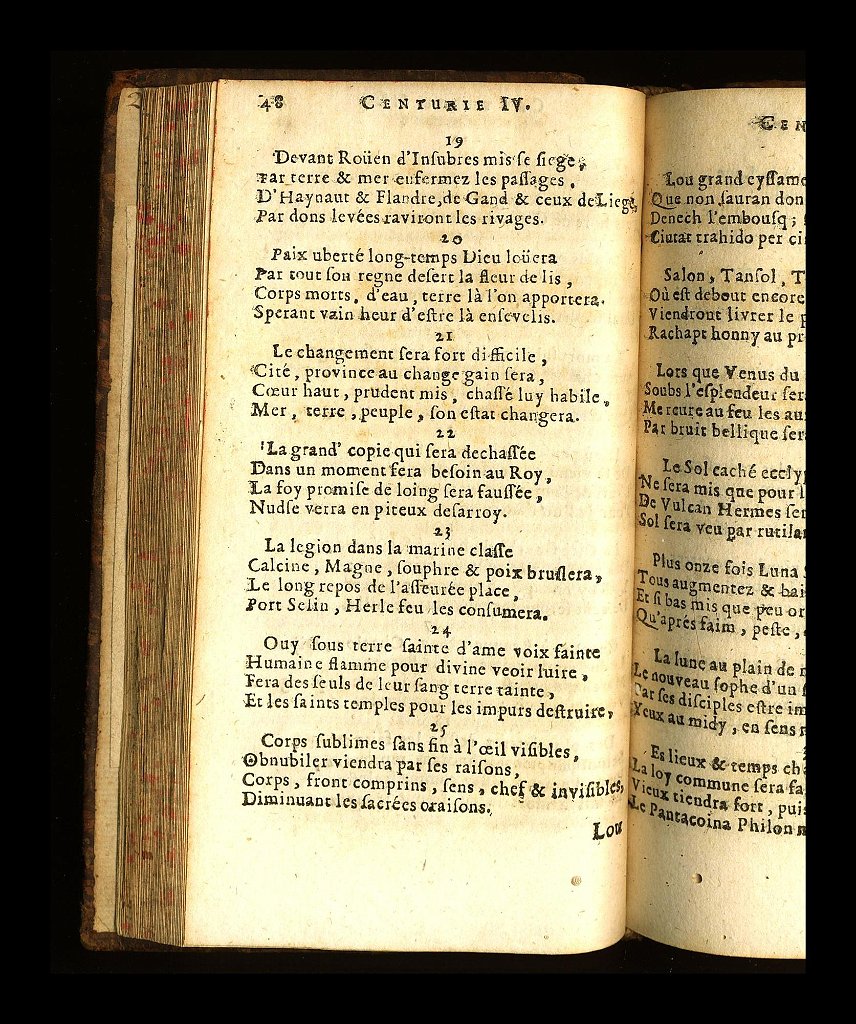 48 CENTURIE IV.
19
Devant Roüen d'Inſubres mis ſe ſiege,
Par terre & mer enfermez les paſſages,
D'Haynaut & Flandre, de Gand & ceux de Liege,
Par dons levées raviront les rivages.
20
Paix uberté long-temps Dieu loüera
Par tout ſon regne deſert la fleur de lis,
Corps morts, d'eau, terre là l'on apportera.
Sperant vain heur d'eſtre là enſevelis.
21
Le changement ſera fort difficile,
Cité, province au change gain ſera,
Cœur haut, prudent mis, chaſſé luy habile,
Mer, terre, peuple, ſon eſtat changera.
22
La grand' copie qui ſera dechaſſée
Dans un moment fera beſoin au Roy,
La foy promiſe de loing ſera fauſſée,
Nudſe verra en piteux deſarroy.
23
La legion dans la marine claſſe
Calcine, Magne, ſouphre & poix bruſlera,
Le long repos de l'aſſeurée place,
Port Selin, Herle feu les conſumera.
24
Ouy ſous terre ſainte d'ame voix fainte
Humaine flamme pour divine veoir luire,
Fera des ſeuls de leur ſang terre tainte,
Et les ſaints temples pour les impurs deſtruire,
25
Corps ſublimes ſans fin à l'œil viſibles,
Obnubiler viendra par ſes raiſons,
Corps, front comprins, ſens, chef & inviſibles,
Diminuant les ſacrées oraiſons.
Lou
CEN
Lou grand eyſſame
Que non ſauran don
Denech l'embouſq;
Ciutat trahido per ci
Salon, Tanſol, T
Où eſt debout encore
Viendront livrer le p
Rachapt honny au pr
Lors que Venus du
Soubs l'eſplendeur ſer
Mercure au feu les au
Par bruit bellique ſer
Le Sol caché ecclyp
Ne ſera mis que pour l
De Vulcan Hermes ſer
Sol ſera veu par rutila
Plus onze fois Luna
Tous augmentez & bai
Et ſi bas mis que peu or
Qu'aprés faim, peſte,
La lune au plain de n
Le nouveau ſophe d'un
Par ſes diſciples eſtre im
Yeux au midy, en ſens
Es lieux & temps ch
La loy commune ſera fa
Vieux tiendra fort, puis
Le Pantacoina Philon